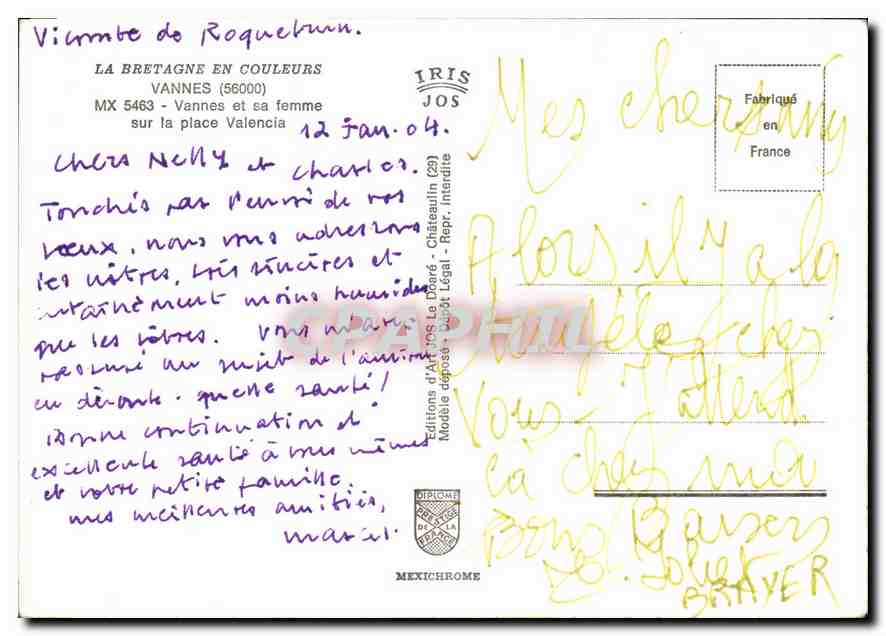 Vicomte de Roquebrun.
LA BRETAGNE EN COULEURS
VANNES (56000)
MX 5463 - Vannes et sa femme
sur la place Valencia
12 Jan. 04.
Chers Nelly et Charles.
Touchés par l'envoi de vos
vœux, nous vous adressons
les nôtres, très sincères et
certainement moins humides
que les vôtres. Vous m'avez
rassuré au sujet de l'
en déroute. quelle santé!
Bonne continuation et
excellente santé à vous mêmes
et votre petite famille.
mes meilleures amitiés,
Marcel.
IRIS
JOS
Editions d'Art JOS Le Doaré - Châteaulin (29)
Modèle déposé - Dépôt Légal - Repr. interdite
DIPLOME
PRESTIGE
DE LA
FRANCE
MEXICHROME
Fabriqué
en
France
Mes chers amis
Alors il y a la
chez
vous - J'attend
ça chez moi
Bons Baisers
BRAYER
CPAPHIL